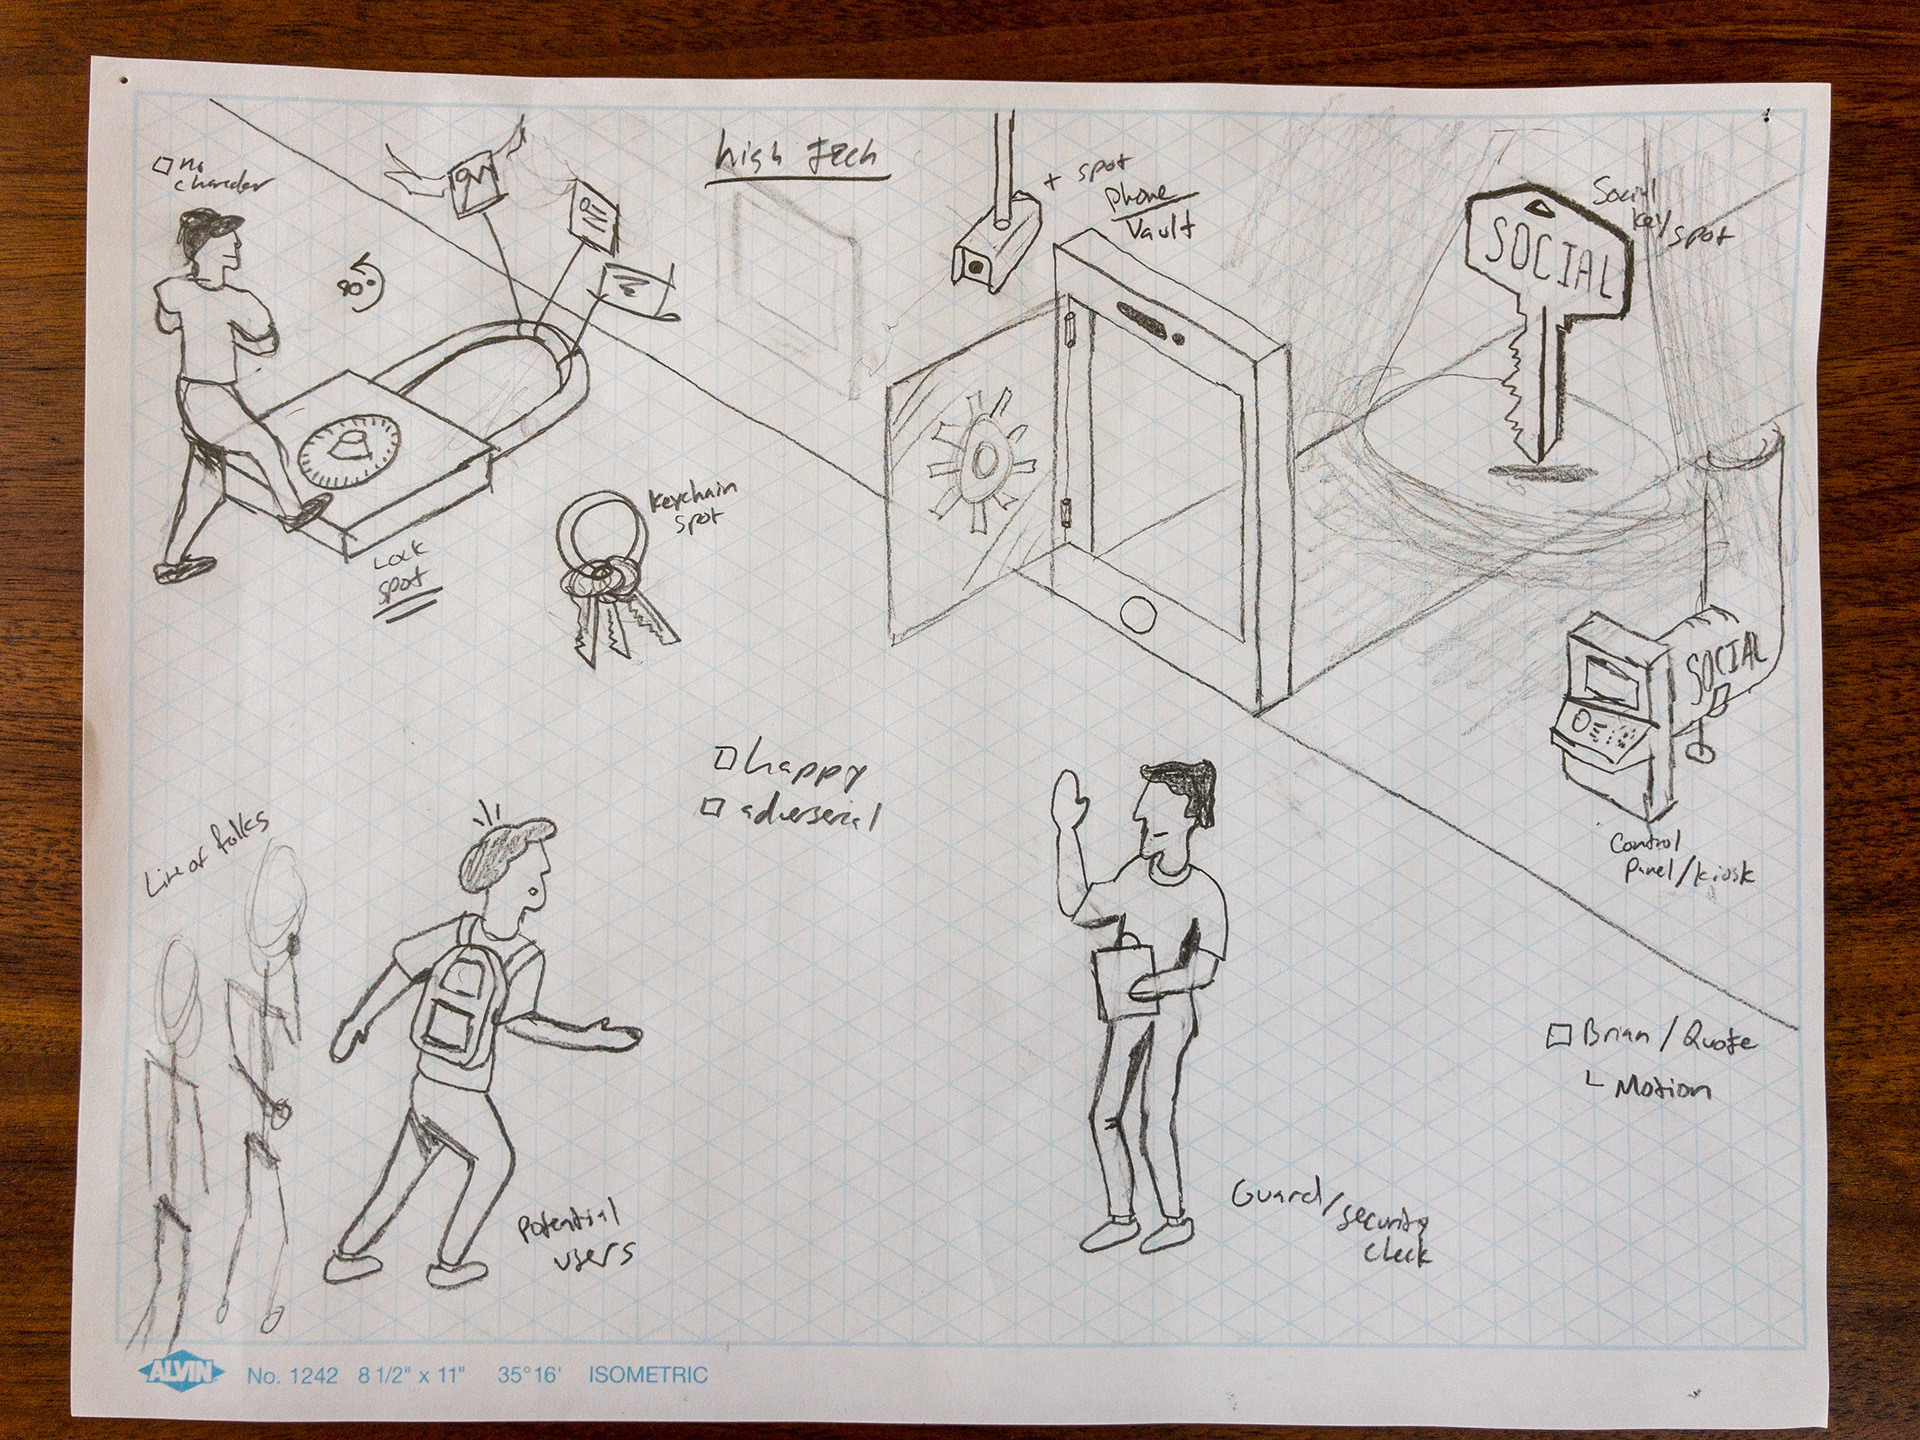 no
high tech
+ spot
Phone
Vault
Social
key/spot
SOCIAL
keychain
spot
Lock
spot
SOCIAL
happy
adverserial
Control
Panel/kiosk
Line of folks
Brian / Quote
Motion
Potential
users
Guard/security
check
ALVIN No. 1242 8 1/2" x 11" 35°16' ISOMETRIC